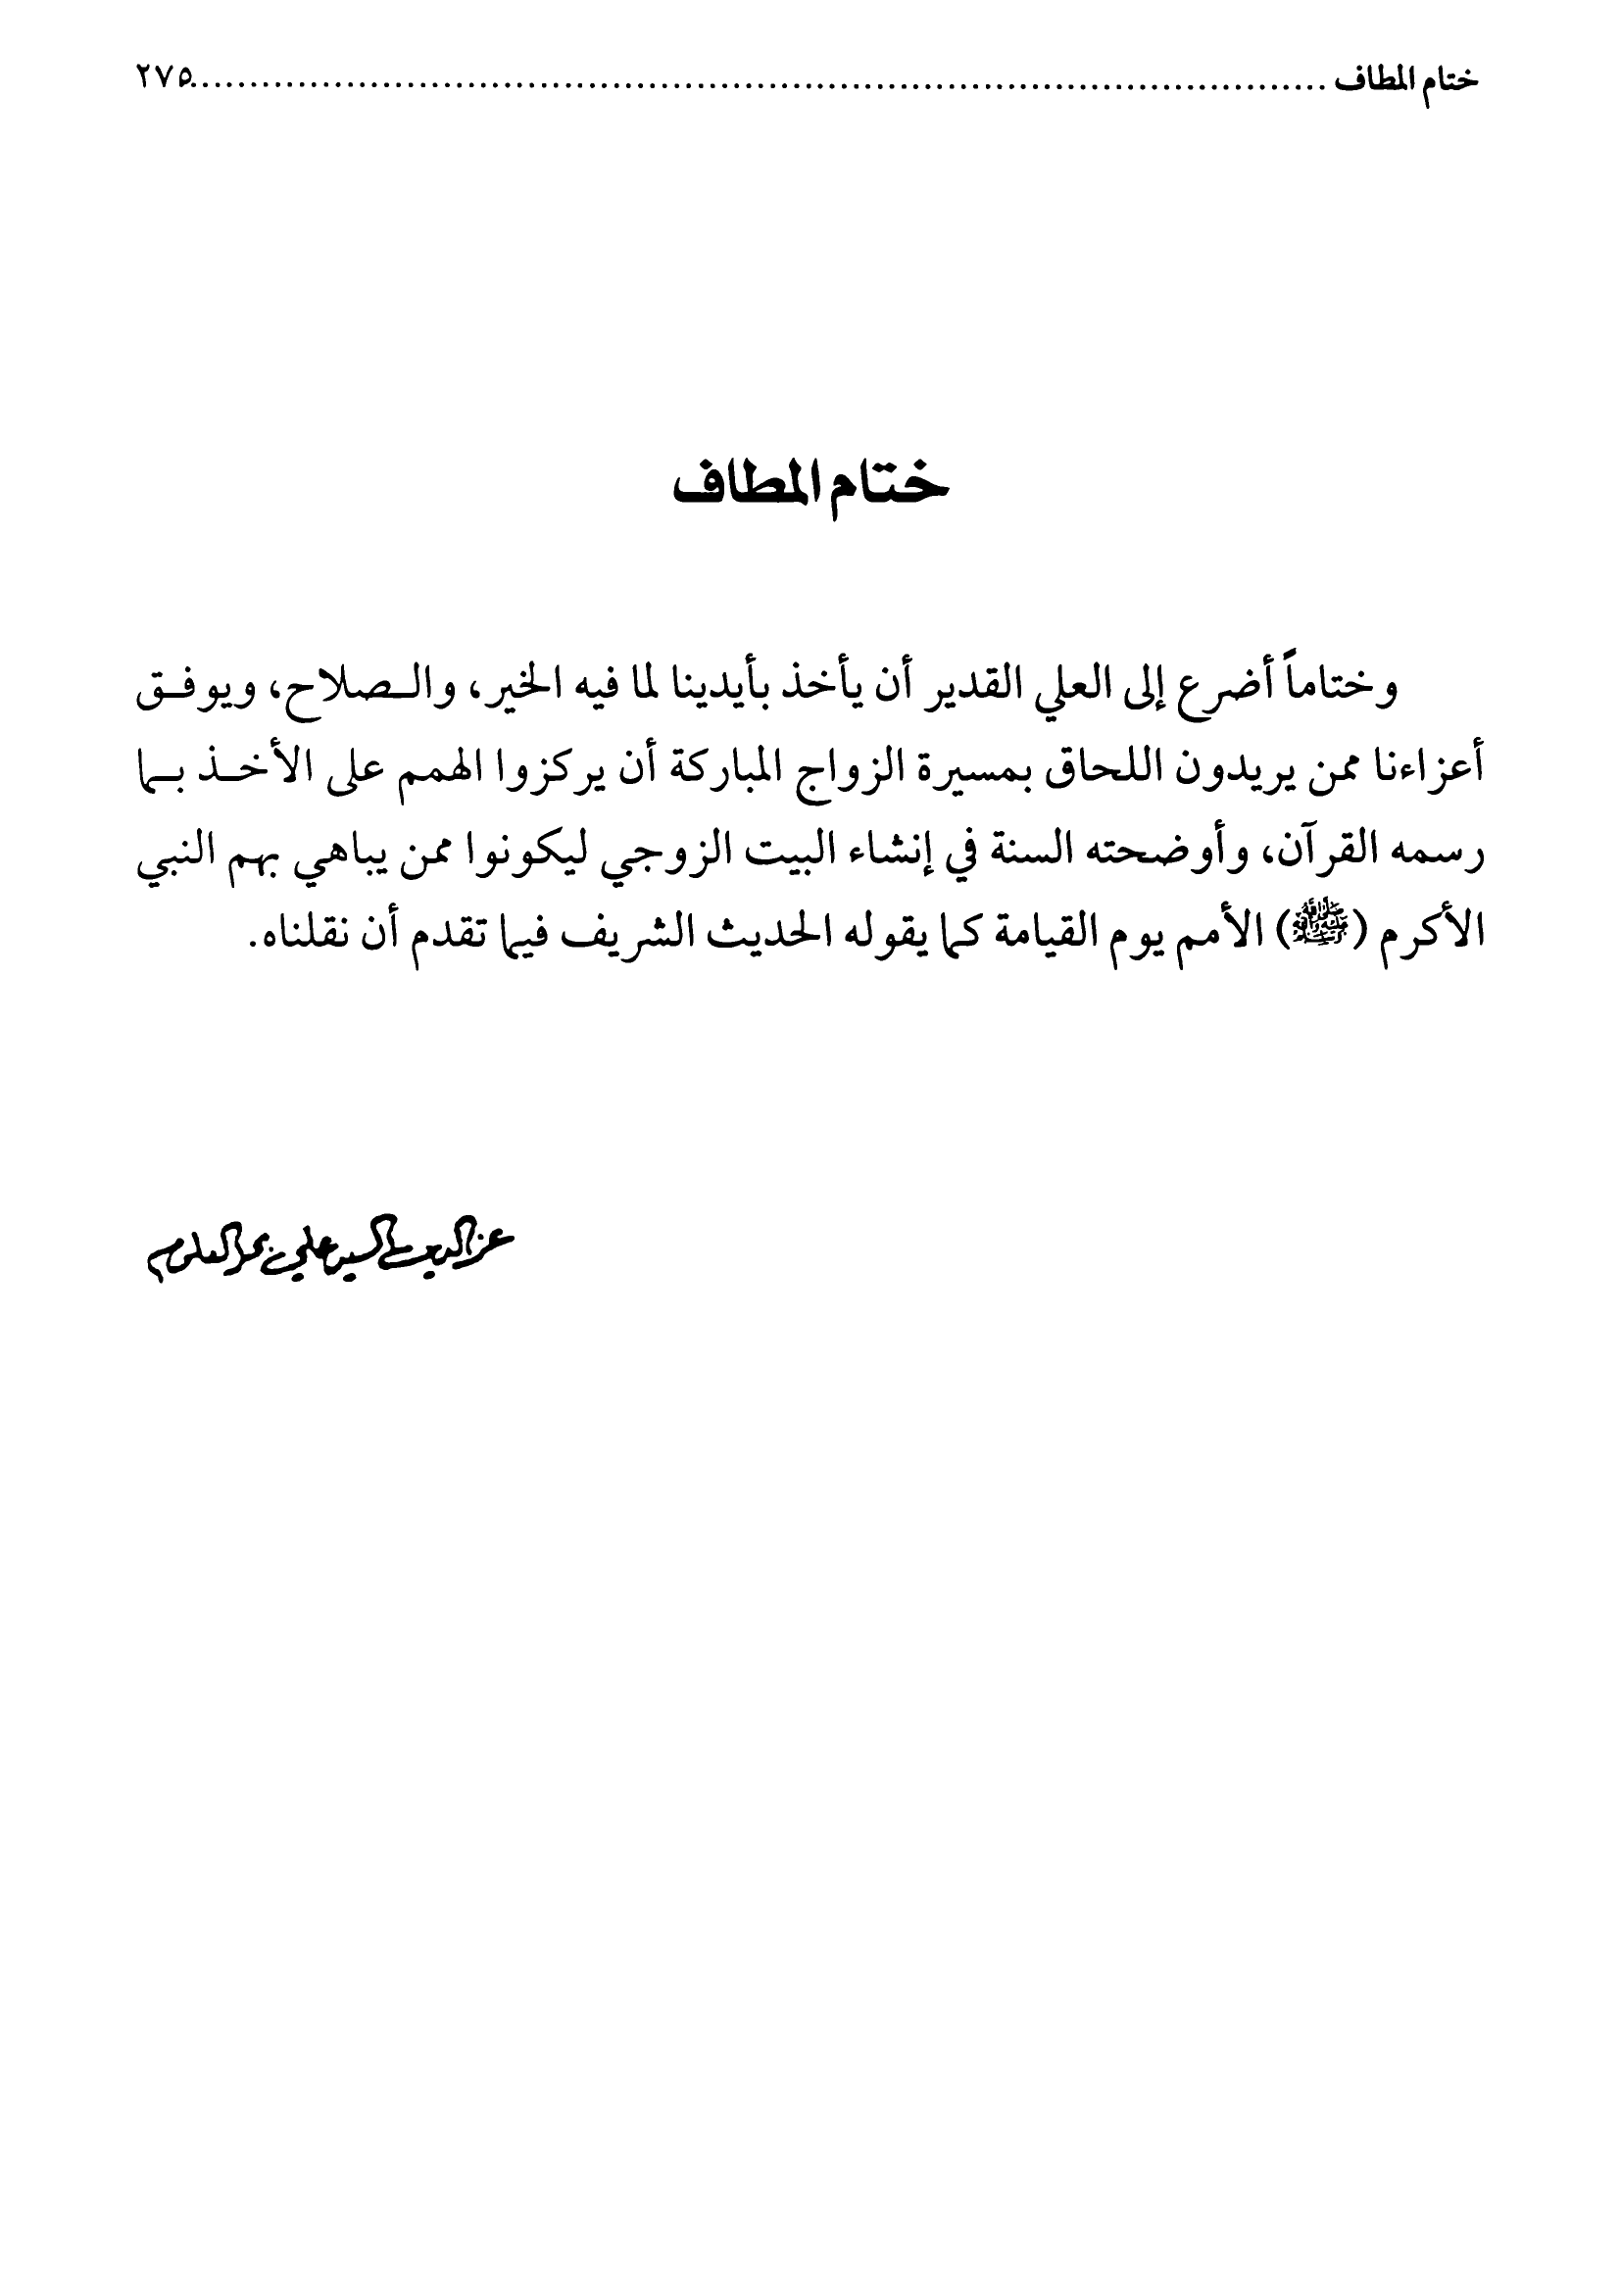 ختام المطاف ................................................................................................ ٢٧٥
ختام المطاف
وختاماً أضرع إلى العلي القدير أن يأخذ بأيدينا لما فيه الخير، والـصلاح، ويوفـق
أعزاءنا ممن يريدون اللحاق بمسيرة الزواج المباركة أن يركزوا الهمم على الأخـذ بـما
رسمه القرآن، وأوضحته السنة في إنشاء البيت الزوجي ليكونوا ممن يباهي بهم النبي
الأكرم (ﷺ) الأمم يوم القيامة كما يقوله الحديث الشريف فيما تقدم أن نقلناه.
عز الدين السيد علي بحر العلوم